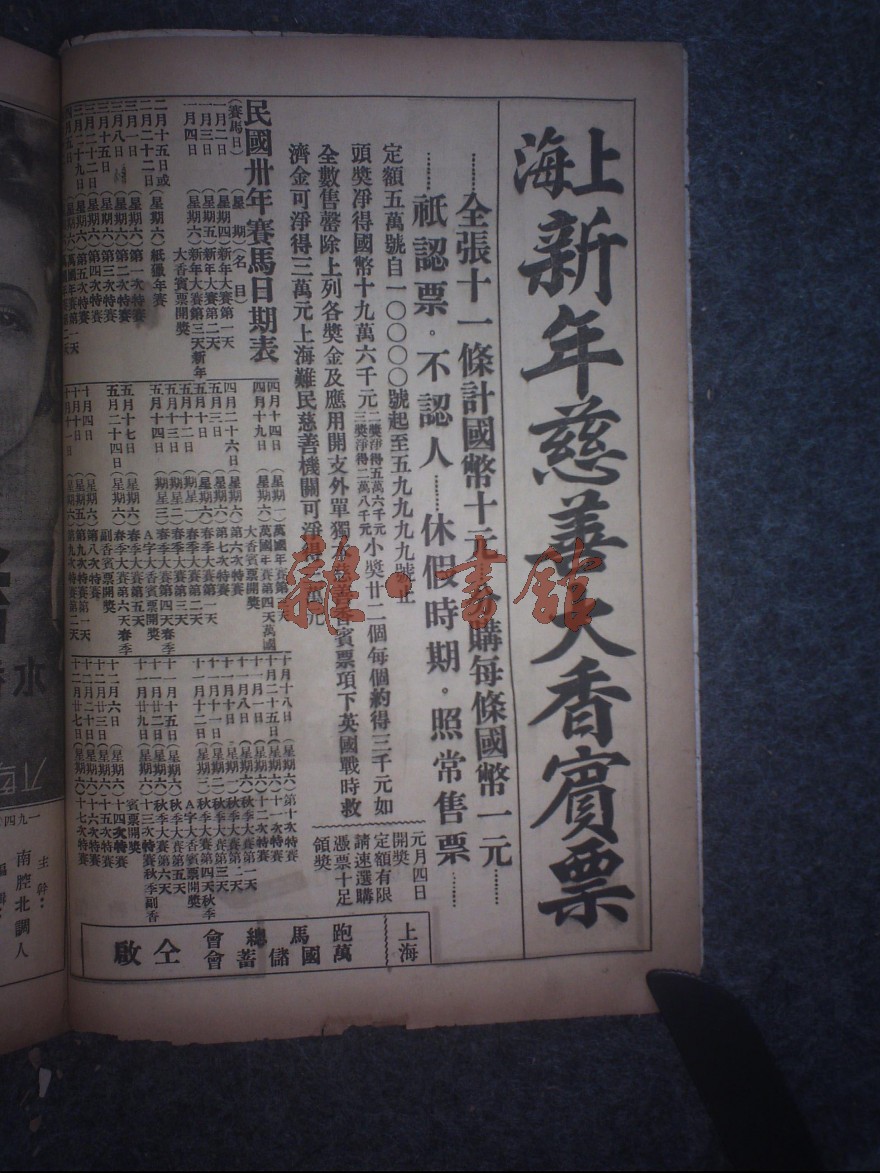 上海
新年慈善大香賓票
……全張十一條計國幣十元分購每條國幣一元……
……祇認票。不認人……休假時期。照常售票……
定額五萬號自一〇〇〇〇號起至五九九九九號止
頭獎凈得國幣十九萬六千元二獎淨得五萬六千元三獎淨得二萬八千元小獎廿二個每個約得三千元如
全數售罄除上列各獎金及應用開支外單獨慈善香賓票項下英國戰時救
濟金可淨得三萬元上海難民慈善機關可淨得元
元月四日
開獎
定額有限
請速選購
憑票十足
領獎
民國卅年賽馬日期表
(賽馬日)(星期)(名目)
一月二日(星期四)新年大賽第一天
一月三日(星期五)新年大賽第二天
一月四日(星期六)新年大賽第三天新年
大香賓票開獎
二月十五日或
二月二十二日(星期六)紙獵年賽
三月一日(星期六)第一次特賽
三月八日(星期六)第二次特賽
三月十五日(星期六)第三次特賽
三月二十二日(星期六)第四次特賽
三月二十九日(星期六)第五次特賽
四月十四日(星期一)萬國年賽第
四月十九日(星期六)萬國年賽第四天萬國
大香賓票開獎
四月二十六日(星期六)第六次特賽
五月三日(星期六)第七次特賽
五月十日(星期六)春季大賽第一天
五月十二日(星期一)春季大賽第二天
五月十三日(星期二)春季大賽第三天
五月十四日(星期三)春季大賽第四天春季
A字大香賓票開獎
五月十七日(星期六)春季大賽第六天春季
副香賓票開獎
五月二十四日(星期六)第八次特賽
十月四日(星期六)第九次特賽第一天
十月十八日(星期六)第十次特賽
十月二十五日(星期六)十一次特賽
十一月一日(星期六)十二次特賽
十一月八日(星期六)秋季大賽第一天
十一月十日(星期一)秋季大賽第二天
十一月十一日(星期二)秋季大賽第三天
十一月十二日(星期三)秋季大賽第四天秋季
A字大香賓票開獎
十一月十五日(星期六)秋季大賽第五天
十一月廿二日(星期六)秋季大賽第六天
十一月廿九日(星期六)十三次特賽秋季副香
賓票開獎
十二月六日(星期六)十四次特賽
十二月十三日(星期六)十五次特賽
十二月二十日(星期六)十六次特賽
十二月廿七日(星期六)十七次特賽
上海
跑馬總會
萬國儲蓄會
仝啟
雜·書館
水
一九四
主幹:
南腔北調人